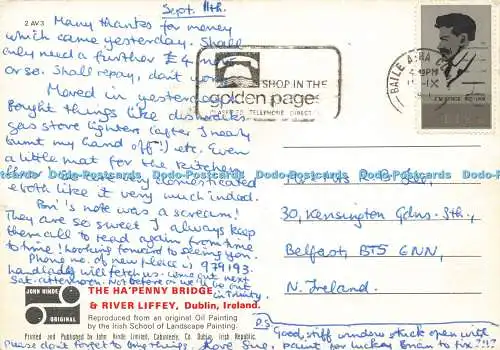 Sept. 11th.
2 AV 3
Many thanks for money
which came yesterday. Shall
only need a further £4 now
or so. Shall repay, don't worry.
Moved in yesterday
Bought things like dishcloths
gas stove lighter (after I nearly
burnt my hand off!) etc. Even
a little mat for the kitchen
domesticated
& both like it very much indeed.
note was a scream!
They are so sweet I always keep
them all to read again from time
to time! Looking forward to seeing you.
Phone no. of new place is 979193.
landlady will fetch us. Come out next
Sat. afternoon. Not before as we'll be out
in Trinity.
SHOP IN THE
golden pages
CLASSIFIED TELEPHONE DIRECTORY
BAILE ÁTHA
4 30PM
11 IX
30, Kensington Gdns. Sth.,
Belfast BT5 6NN,
N. Ireland.
JOHN HINDE
ORIGINAL
THE HA'PENNY BRIDGE
& RIVER LIFFEY, Dublin, Ireland.
Reproduced from an original Oil Painting
by the Irish School of Landscape Painting.
Printed and Published by John Hinde Limited, Cabinteely, Co. Dublin, Irish Republic.
P.S. Good, stiff window stuck open with
paint for Brian to fix?!!?
please don't forget to bring things. Love Sine,
Dodo-Postcards Dodo-Postcards Dodo-Postcards Dodo-Postcards